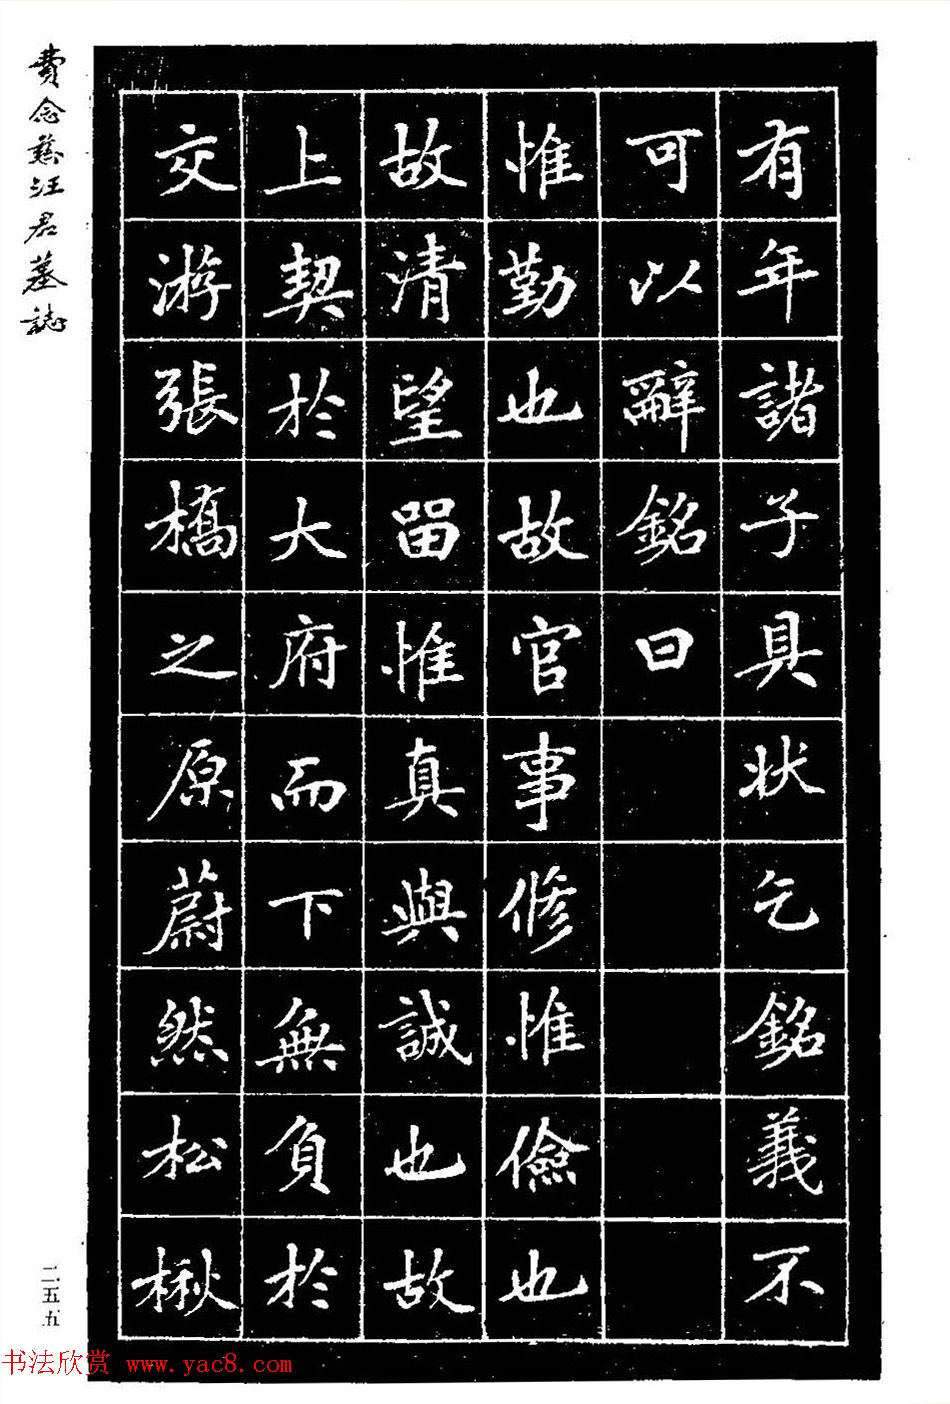 有年諸子具狀乞銘義不
可以辭銘曰
惟勤也故官事修惟儉也
故清望留惟真與誠也故
上契於大府而下無負於
交游張橋之原蔚然松楸
費念慈汪君墓誌
二五五
书法欣赏 www.yac8.com